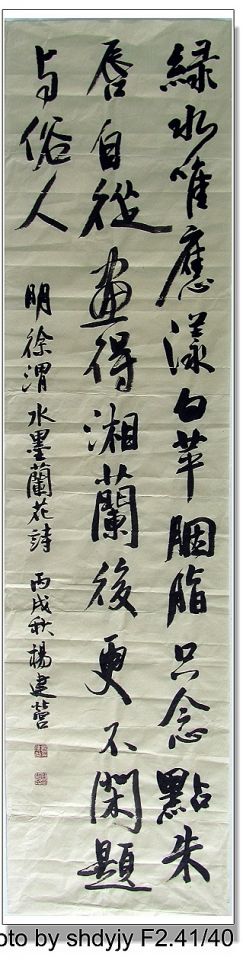 緑水唯應漾白苹胭脂只念點朱
唇自從畫得湘蘭後更不閑題
与俗人 明徐渭水墨蘭花詩 丙戌秋楊建營
oto by shdyjy F2.41/40